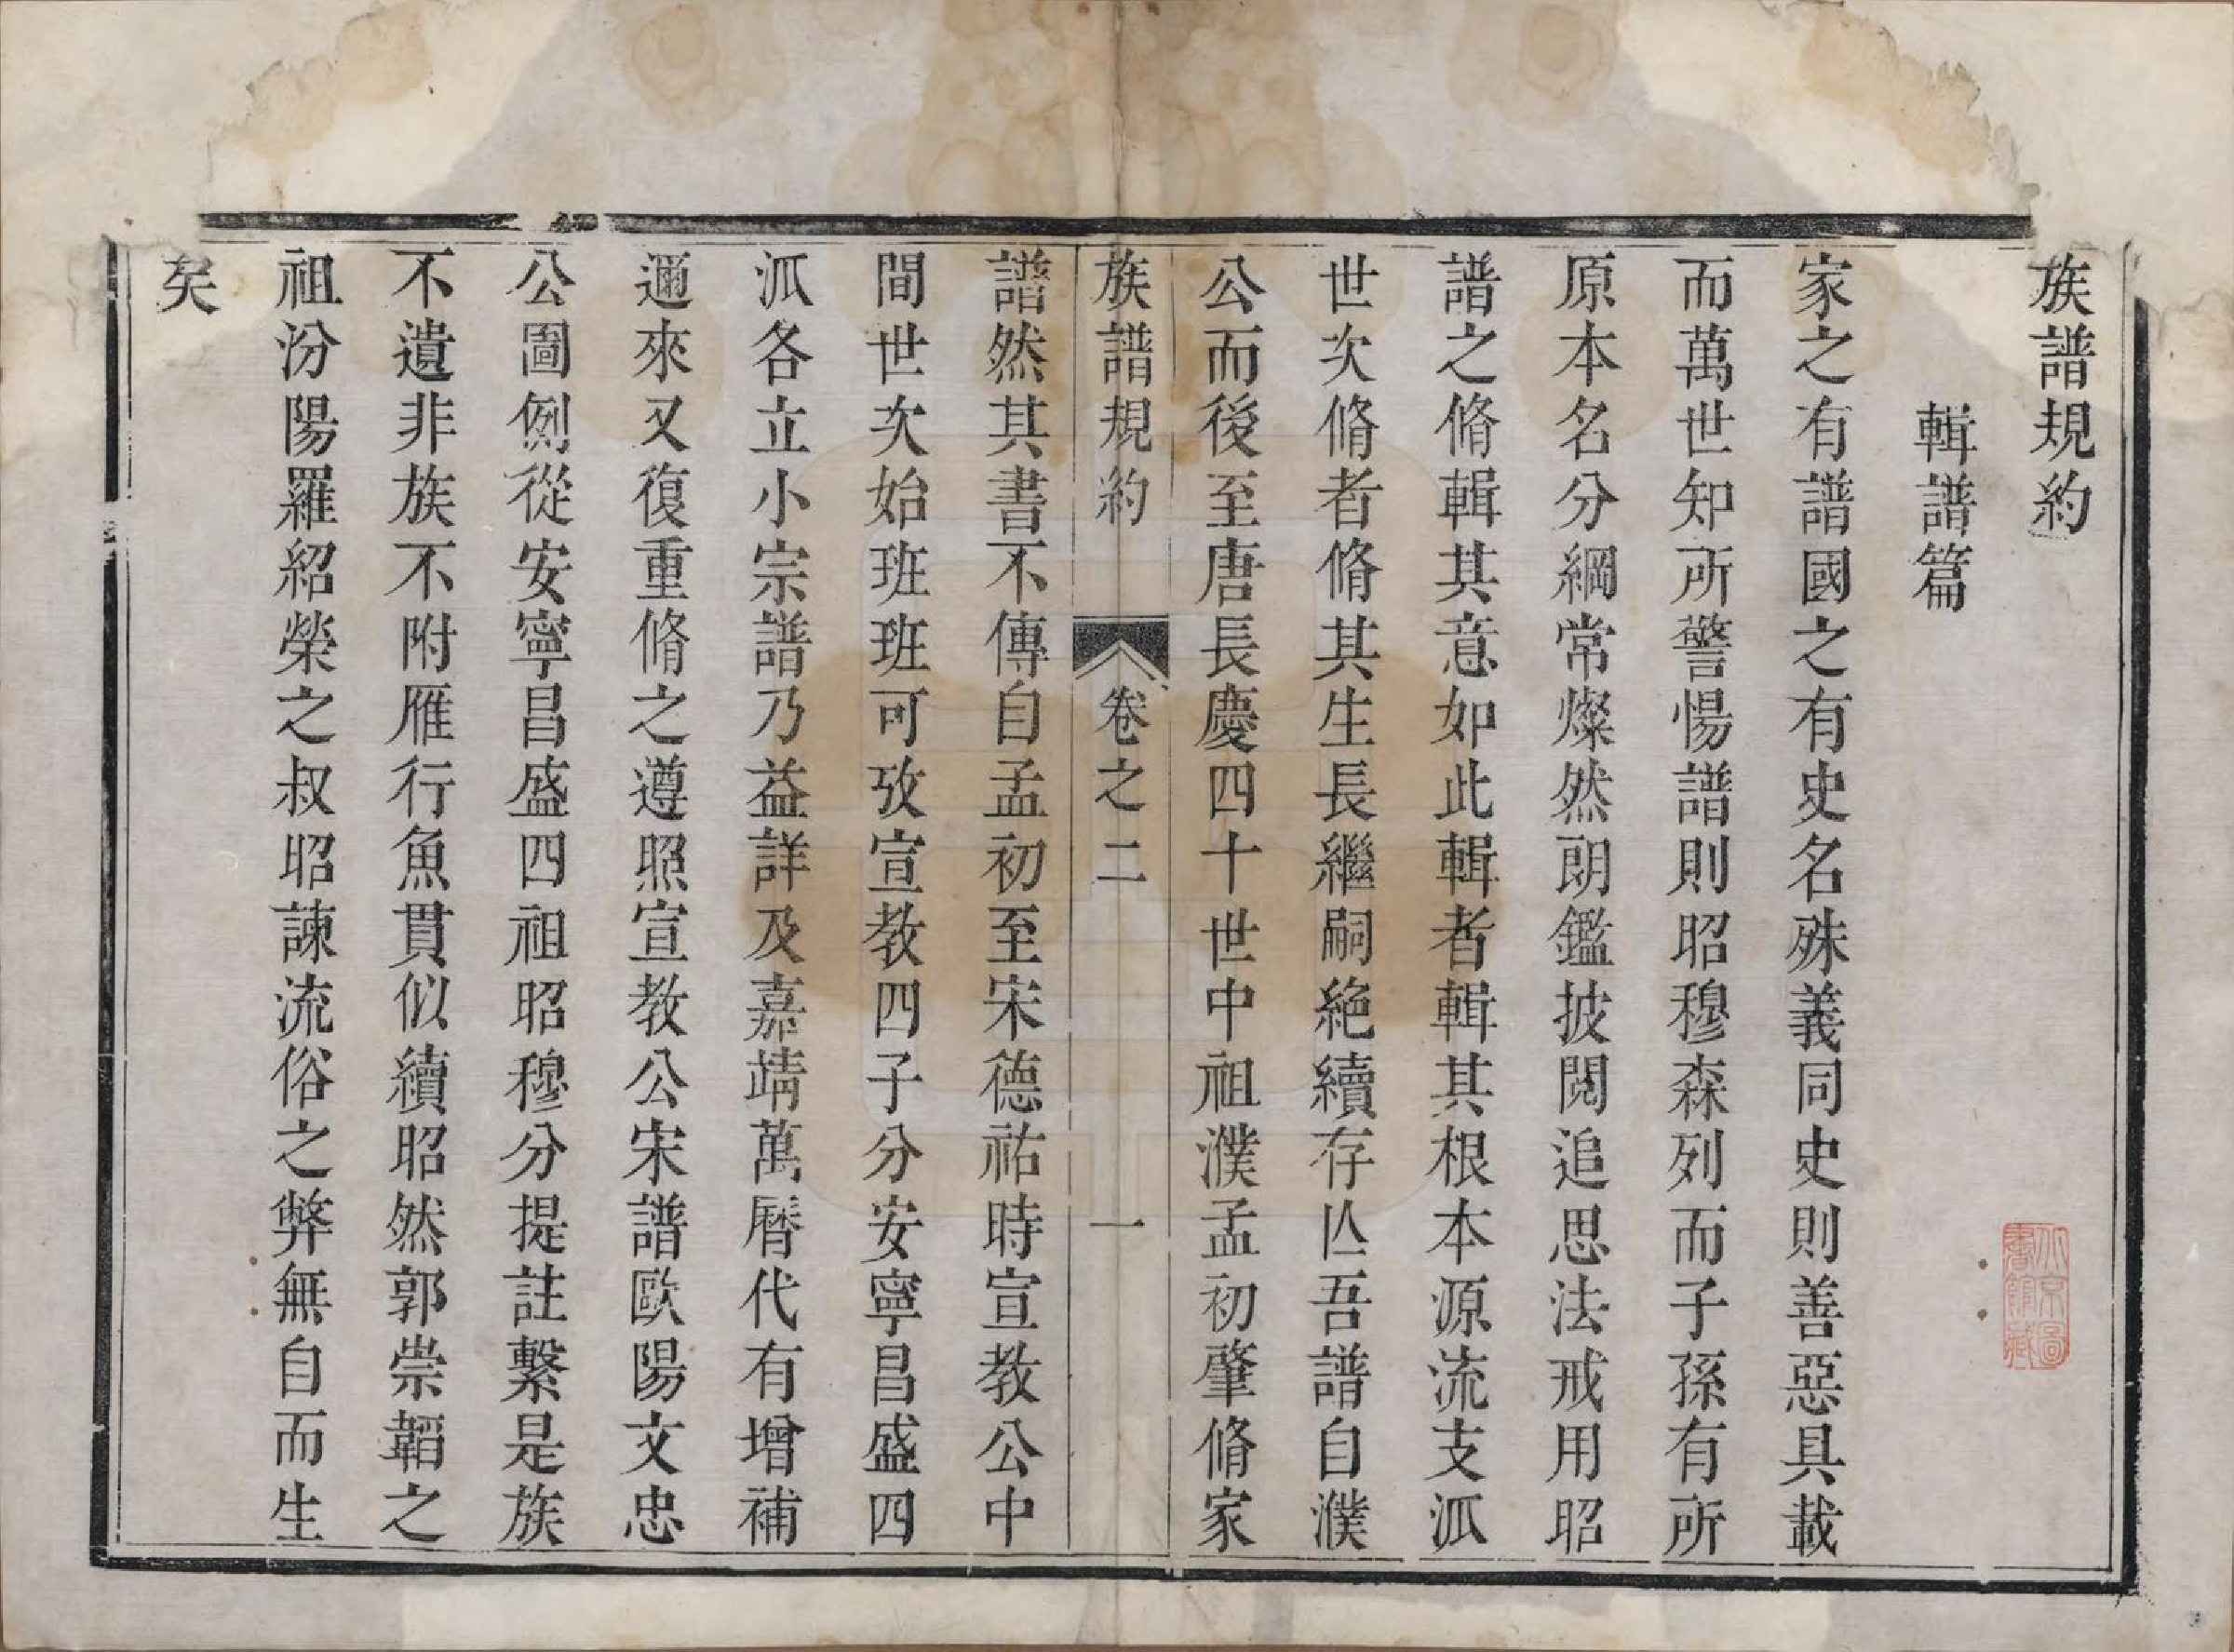 族譜規約
輯譜篇
家之有譜國之有史名殊義同史則善惡具載
而萬世知所警惕譜則昭穆森列而子孫有所
原本名分綱常燦然朗鑑披閱追思法戒用昭
譜之脩輯其意如此輯者輯其根本源流支派
世次脩者脩其生長繼嗣絶續存亾吾譜自濮
公而後至唐長慶四十世中祖濮孟初肇脩家
族譜規約 卷之二 一
譜然其書不傳自孟初至宋德祐時宣教公中
間世次始班班可攷宣教四子分安寧昌盛四
派各立小宗譜乃益詳及嘉靖萬曆代有增補
邇來又復重脩之遵照宣教公宋譜歐陽文忠
公圖例從安寧昌盛四祖昭穆分提註繫是族
不遺非族不附雁行魚貫似續昭然郭崇韜之
祖汾陽羅紹榮之叔昭諫流俗之弊無自而生
矣
北京圖書館藏